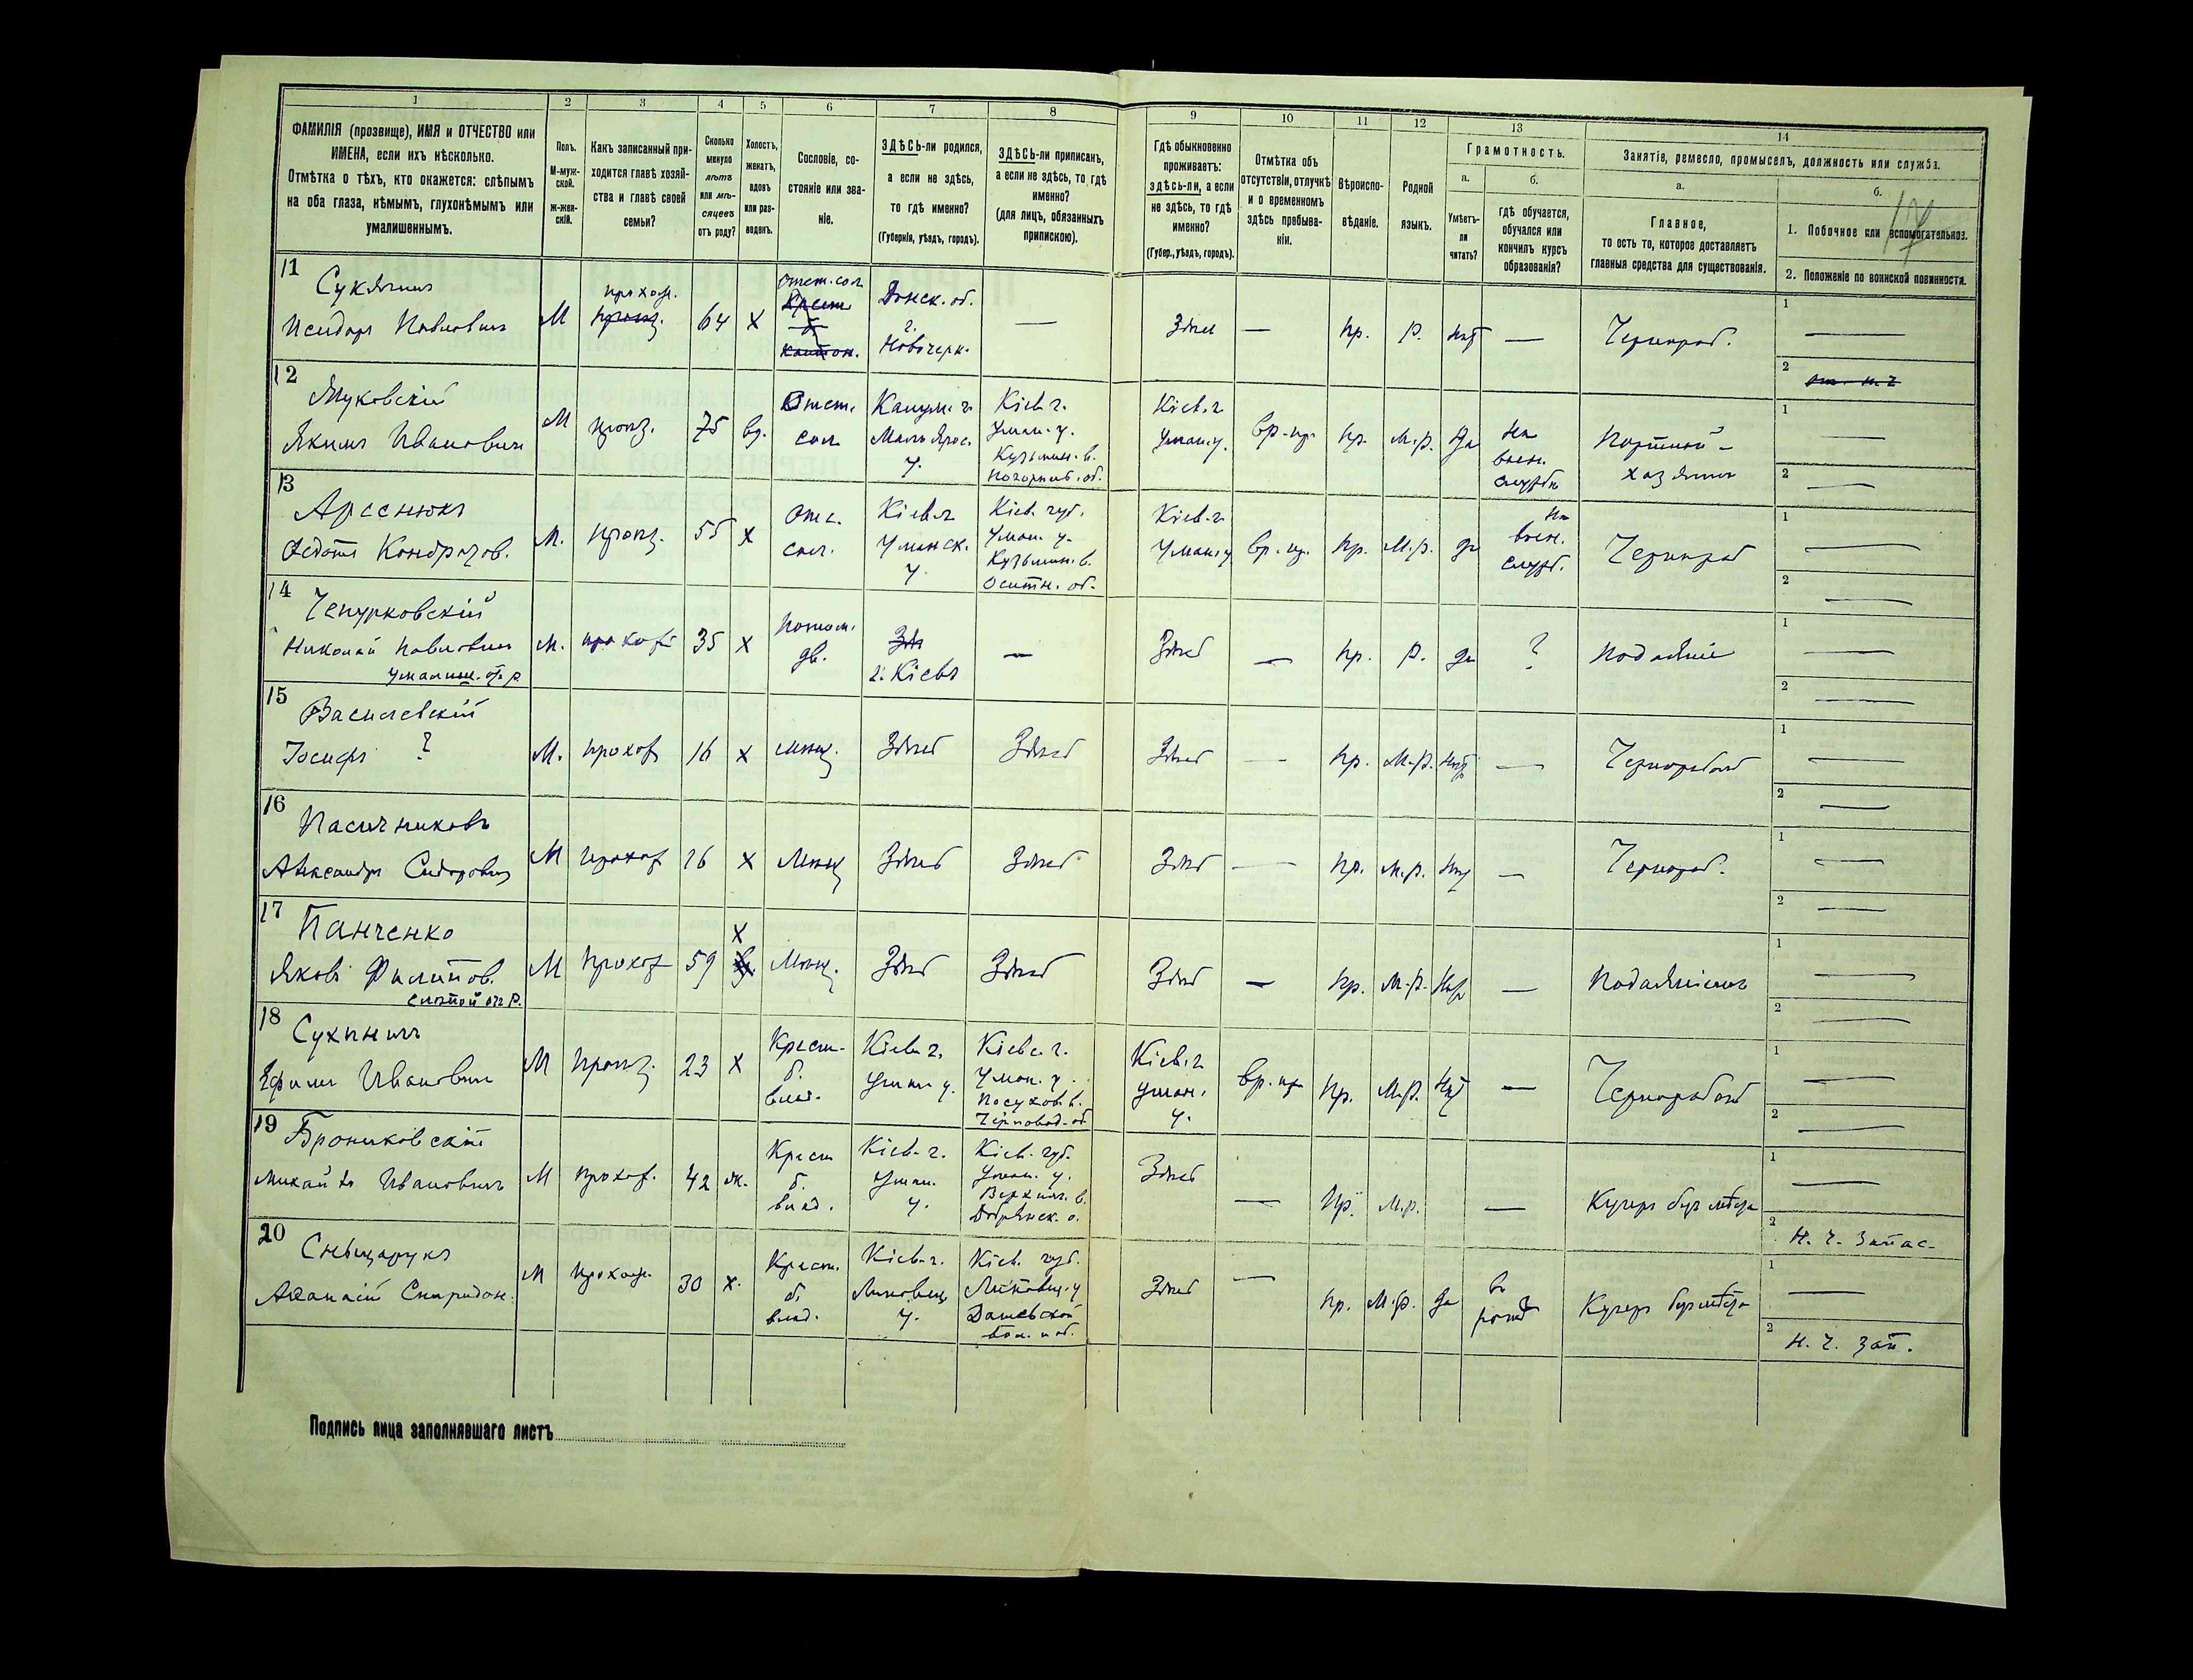 1
2
3
4
5
6
7
8
9
10
11
12
13
14
ФАМИЛІЯ (прозвище), ИМЯ и ОТЧЕСТВО или
ИМЕНА, если ихъ нѣсколько.
Отмѣтка о тѣхъ, кто окажется: слѣпымъ
на оба глаза, нѣмымъ, глухонѣмымъ или
умалишеннымъ.
Полъ.
М-муж-
ской.
Ж-жен-
скій.
Какъ записанный при-
ходится главѣ хозяй-
ства и главѣ своей
семьи?
Сколько
минуло
лѣтъ
или мѣ-
сяцевъ
отъ роду?
Холостъ,
женатъ,
вдовъ
или раз-
веденъ.
Сословіе, со-
стояніе или зва-
ніе.
ЗДѢСЬ-ли родился,
а если не здѣсь,
то гдѣ именно?
(Губернія, уѣздъ, городъ).
ЗДѢСЬ-ли приписанъ,
а если не здѣсь, то гдѣ
именно?
(для лицъ, обязанныхъ
припискою).
Гдѣ обыкновенно
проживаетъ:
здѣсь-ли, а если
не здѣсь, то гдѣ
именно?
(Губер., уѣздъ, городъ).
Отмѣтка объ
отсутствіи, отлучкѣ
и о временномъ
здѣсь пребыва-
ніи.
Вѣроиспо-
вѣданіе.
Родной
языкъ.
Грамотность.
а.
Умѣетъ-
ли
читать?
б.
гдѣ обучается,
обучался или
кончилъ курсъ
образованія?
Занятіе, ремесло, промыселъ, должность или служба.
а.
Главное,
то есть то, которое доставляетъ
главныя средства для существованія.
б.
17
1. Побочное или вспомогательное.
2. Положеніе по воинской повинности.
11
Исидоръ Павловичъ
М
64
Х
Отст. сол
Донск. об.
г.
Новочерк.
—
—
пр.
р.
нѣт
—
Чернораб.
1 —
2
12
Якимъ Ивановичъ
М
75
вд.
Отст.
сол
Калуж. г.
Мало Ярос.
у.
Кіев. г.
Уман. у.
Кузьмин. в.
Кіев. г.
Уман. у.
вр. пр.
пр.
М. р.
да
На
воен.
службѣ
Портной -
хозяинъ
1 —
2 —
13
Арсенюкъ
Федотъ Кондратов.
М.
55
Х
Отс.
сол.
Кіев. г.
Уманск.
у.
Кіев. губ.
Уман. у.
Кузьмин. в.
Оситн. об.
Кіев. г.
Уман. у
вр. пр.
пр.
М. р.
да
На
воен.
служб.
Чернораб
1 —
2 —
14
Чепурковскій
Николай Павловичъ
умалиш. от р.
М.
прохож
35
Х
Потом.
дв.
г. Кіевъ
—
Здѣсь
—
пр.
р.
да
?
Подаяніе
1 —
2 —
15
Василевскій
Іосифъ ?
М.
прохож
16
Х
мѣщ.
Здѣсь
Здѣсь
Здѣсь
—
пр.
М. р.
нѣт
—
Чернорабоч
1 —
2 —
16
Пасичниковъ
Александръ Сидоровичъ
М
прохож
Х
Мѣщ
Здѣсь
Здѣсь
Здѣсь
—
пр.
М. р.
нѣт
—
Чернораб.
1 —
2 —
17
Панченко
Яковъ Филипов.
слѣпой отъ р.
М
прохож
59
Х
Мѣщ.
Здѣсь
Здѣсь
Здѣсь
—
пр.
М. р.
нѣт
—
Подаяніемъ
1 —
2 —
18
Ефимъ Ивановичъ
М
23
Х
Крест.
б.
влад.
Кіев. г.
Уман. у.
Кіевс. г.
Уман. у.
Посухов. в.
Черновод. об
Кіев. г
Уман.
у.
вр. пр
пр.
М. р.
нѣт
—
Чернорабоч
1 —
2 —
19
Брониковскій
Михаилъ Ивановичъ
М
прохож.
42
ж.
Крест
б.
влад.
Кіев. г.
Уман.
у.
Кіев. губ.
Уман. у.
Верхняч. в.
Добрянск. о.
Здѣсь
—
пр.
М. р.
—
Кучеръ безъ мѣста
1 —
2 Н. ч. Запас.
20
Аѳанасій Спиридон.
М
прохож.
30
х.
Крест.
б.
влад.
Кіев. г.
Липовец
у.
Кіев. губ.
Липовец. у
Дашевской
вол. и об.
Здѣсь
—
пр.
М. р.
да
въ
ротѣ
Кучеръ безъ мѣста
1 —
2 Н. ч. Зап.
Подпись лица заполнявшаго листъ